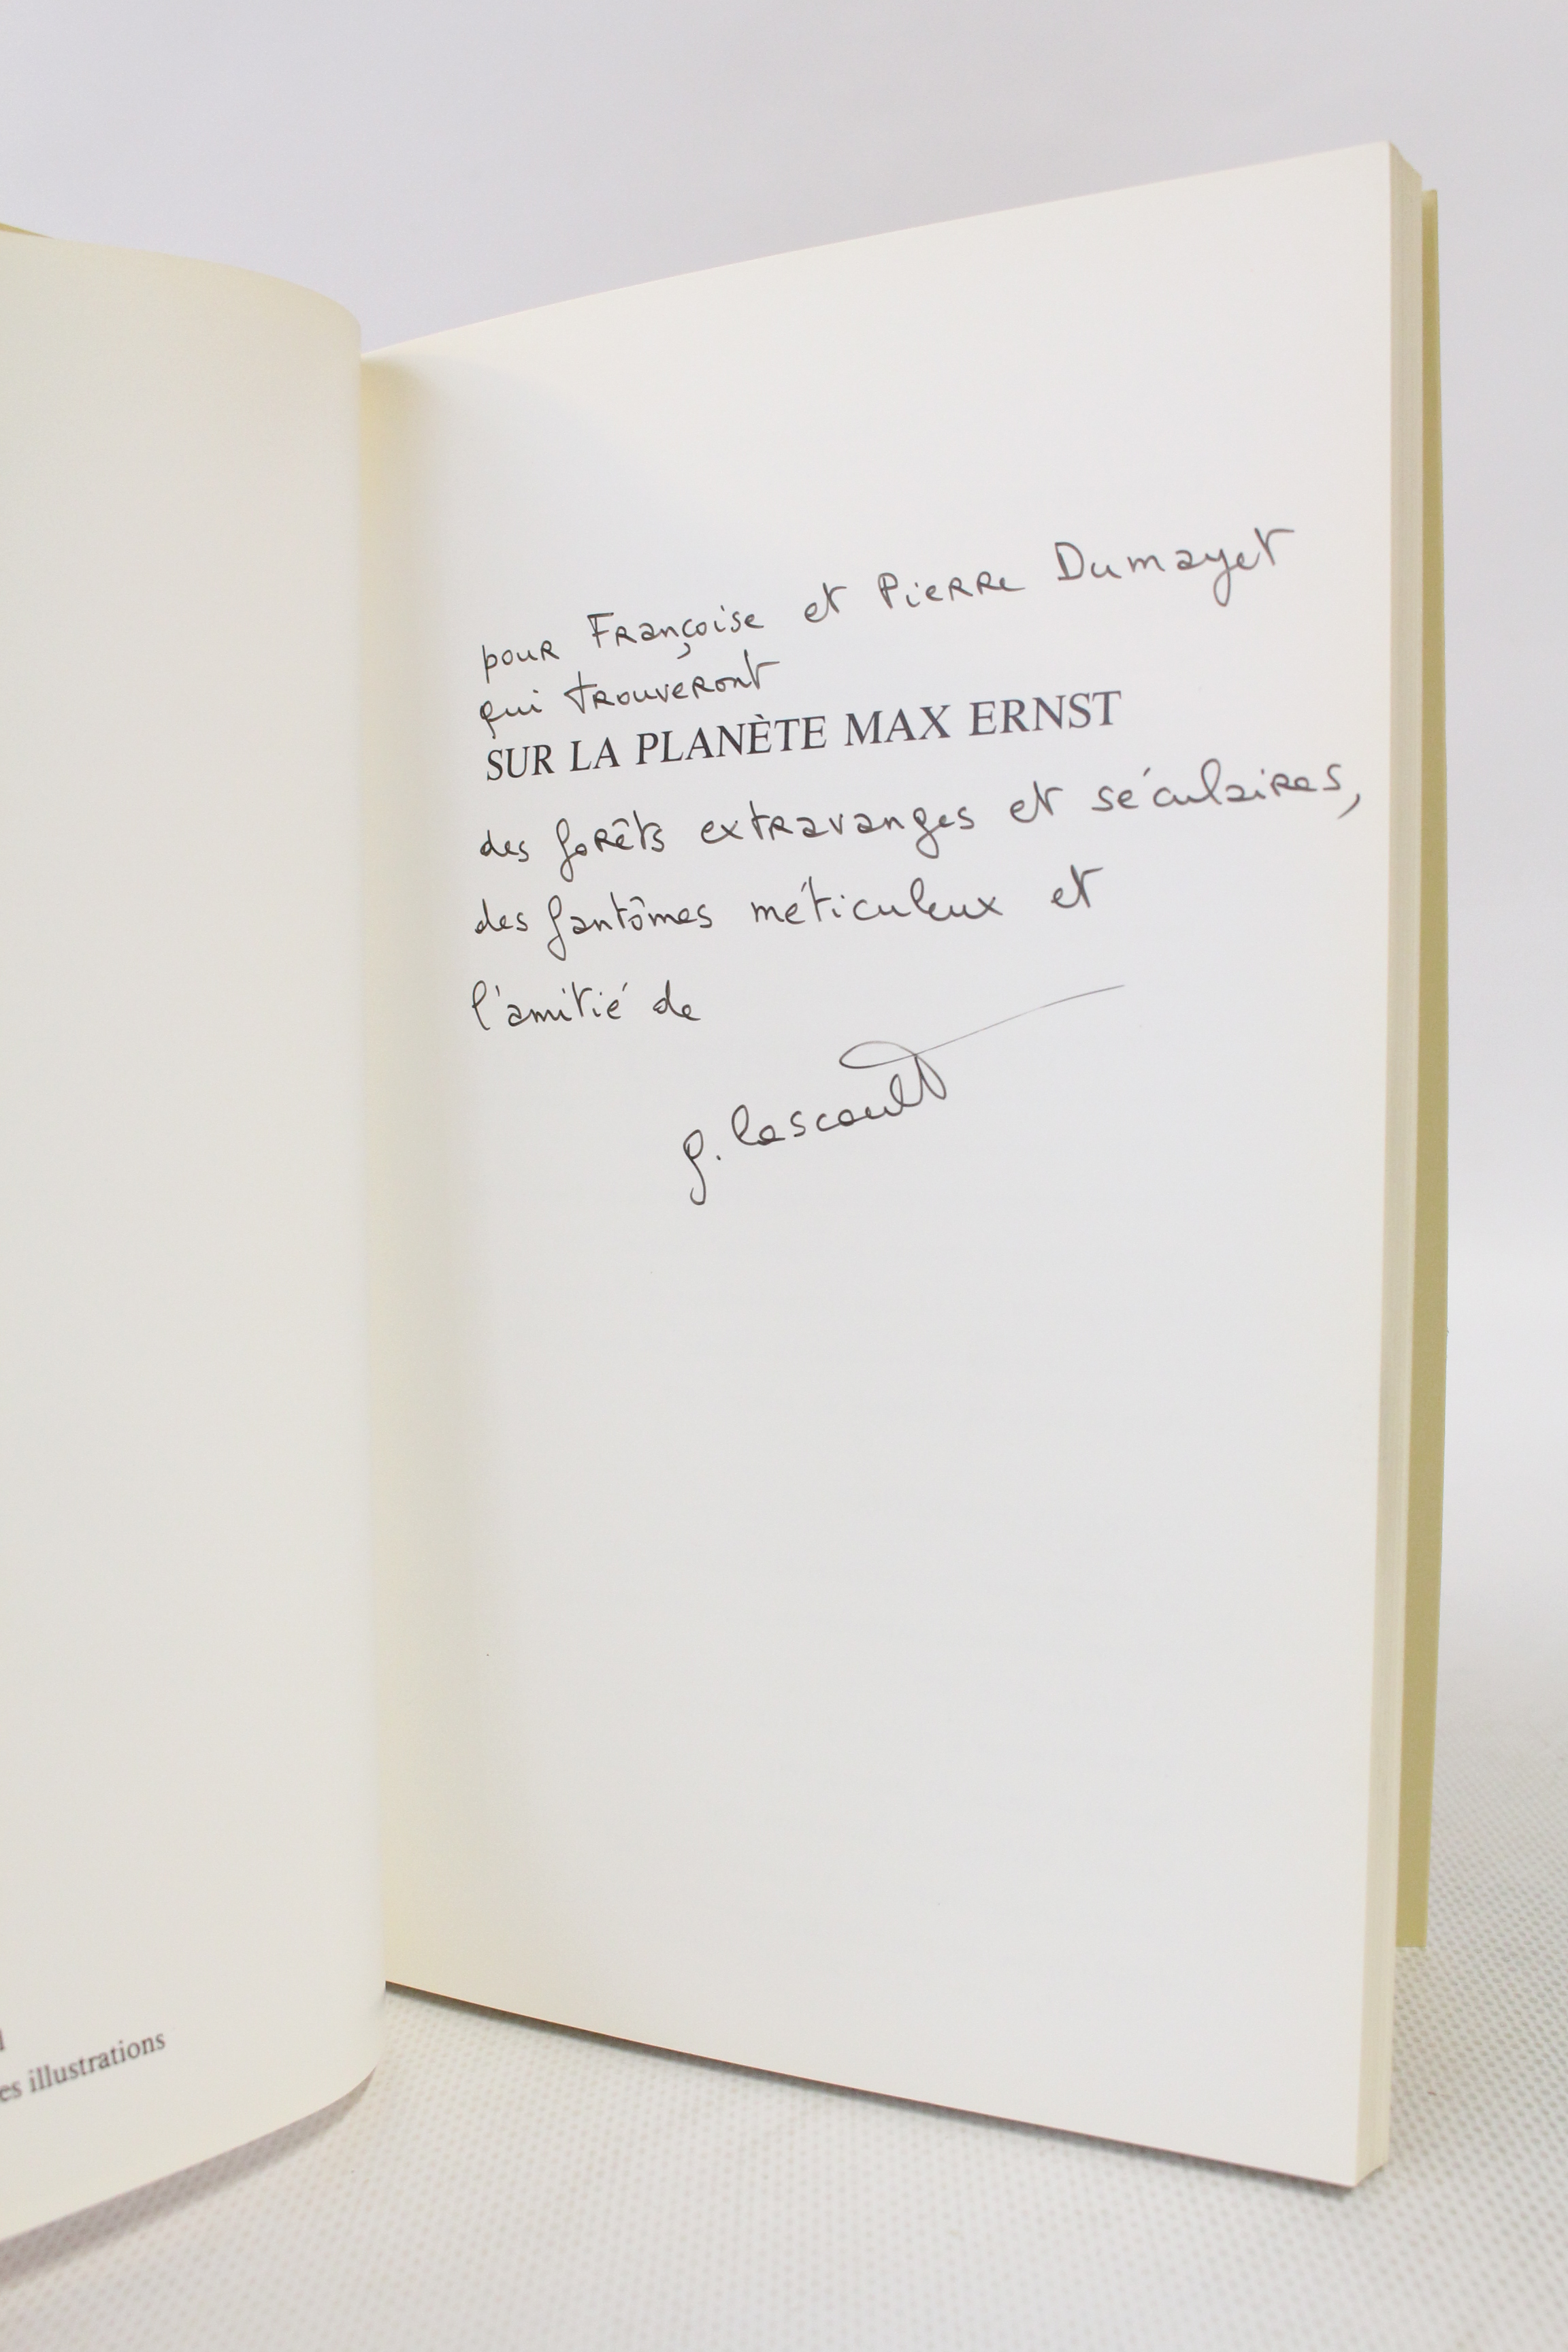 pour Françoise et Pierre Dumayet
qui trouveront
SUR LA PLANÈTE MAX ERNST
des forêts extravanges et séculaires,
des fantômes méticuleux et
l'amitié de
g. lascault
es illustrations